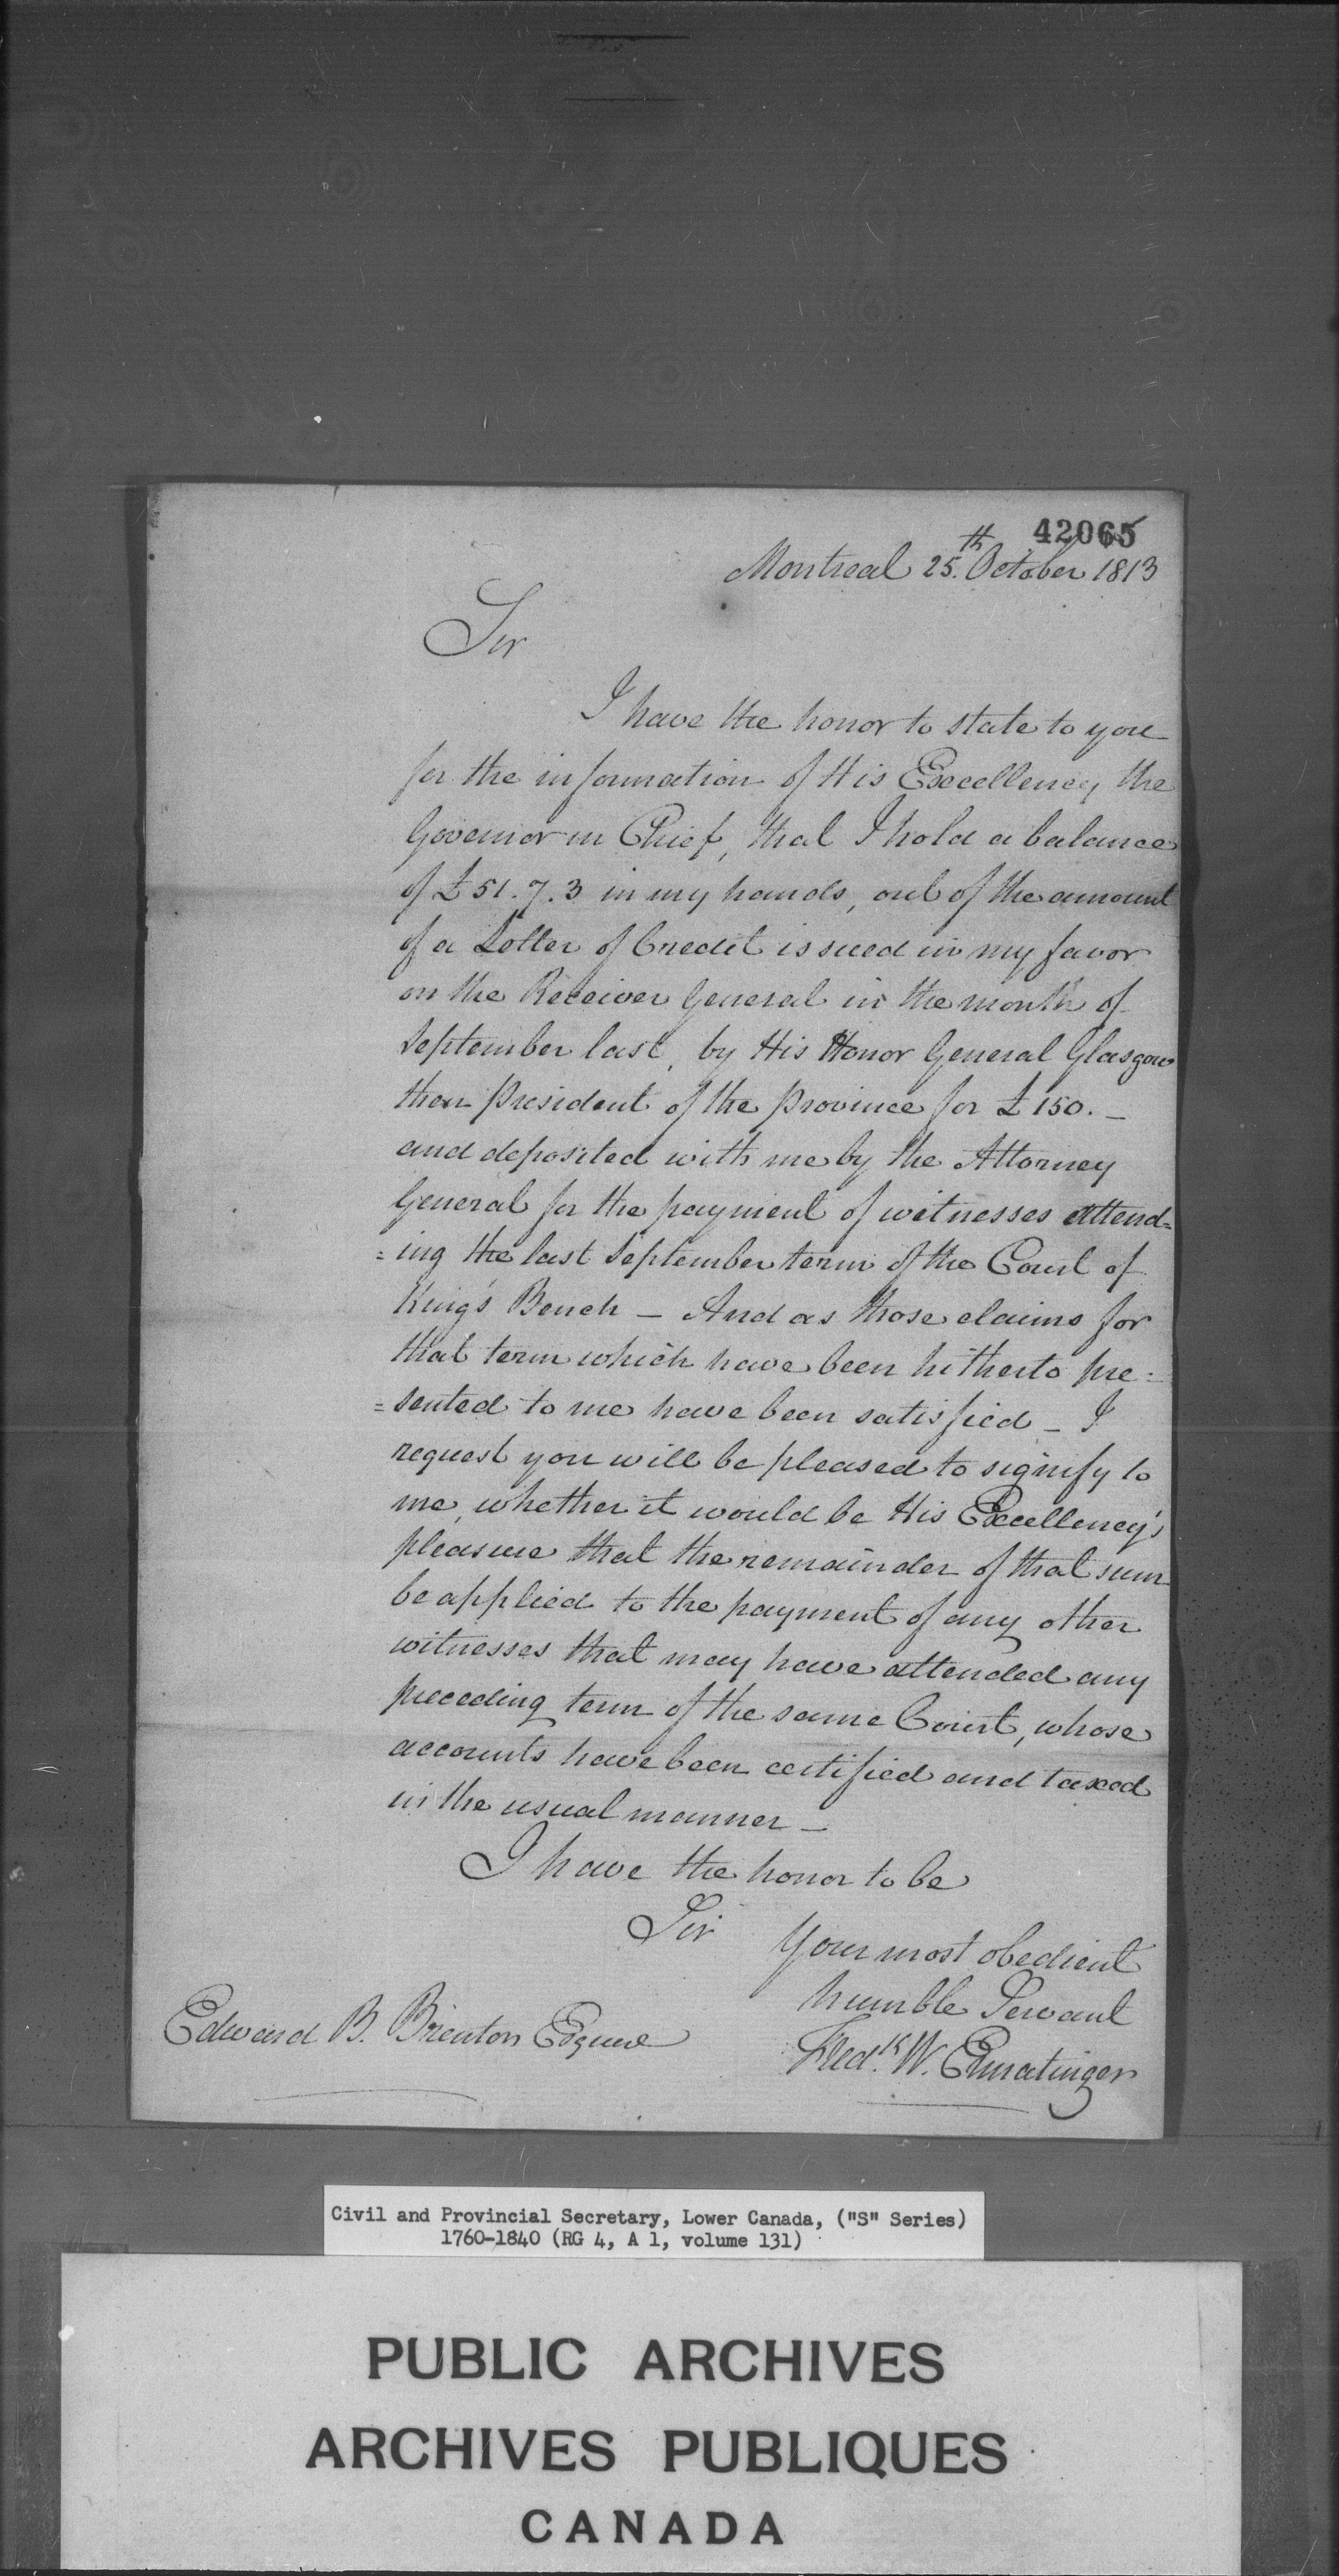 42065
Montreal 25.th October 1813
Sir
I have the honor to state to you
for the information of His Excellency the
Governor in Chief, that I hold a balance
of £51.7.3 in my hands, out of the amount
of a Letter of Credit issued in my favor
on the Receiver General in the month of
September last, by His Honor General Glasgow
then President of the Province for £150._
and deposited with me by the Attorney
General for the payment of witnesses attend=
=ing the last September term of the Court of
King's Bench _ And as those claims for
that term which have been hitherto pre=
=sented to me have been satisfied _ I
request you will be pleased to signify to
me, whether it would be His Excellency's
pleasure that the remainder of that sum
be applied to the payment of any other
witnesses that may have attended any
preceding term of the same Court, whose
accounts have been certified and taxed
in the usual manner _
I have the honor to be
Sir
Your most obedient
humble Servant
Fredk. W. Ermatinger
Edward B. Brenton Esquire
Civil and Provincial Secretary, Lower Canada, ("S" Series)
1760-1840 (RG 4, A 1, volume 131)
PUBLIC ARCHIVES
ARCHIVES PUBLIQUES
CANADA